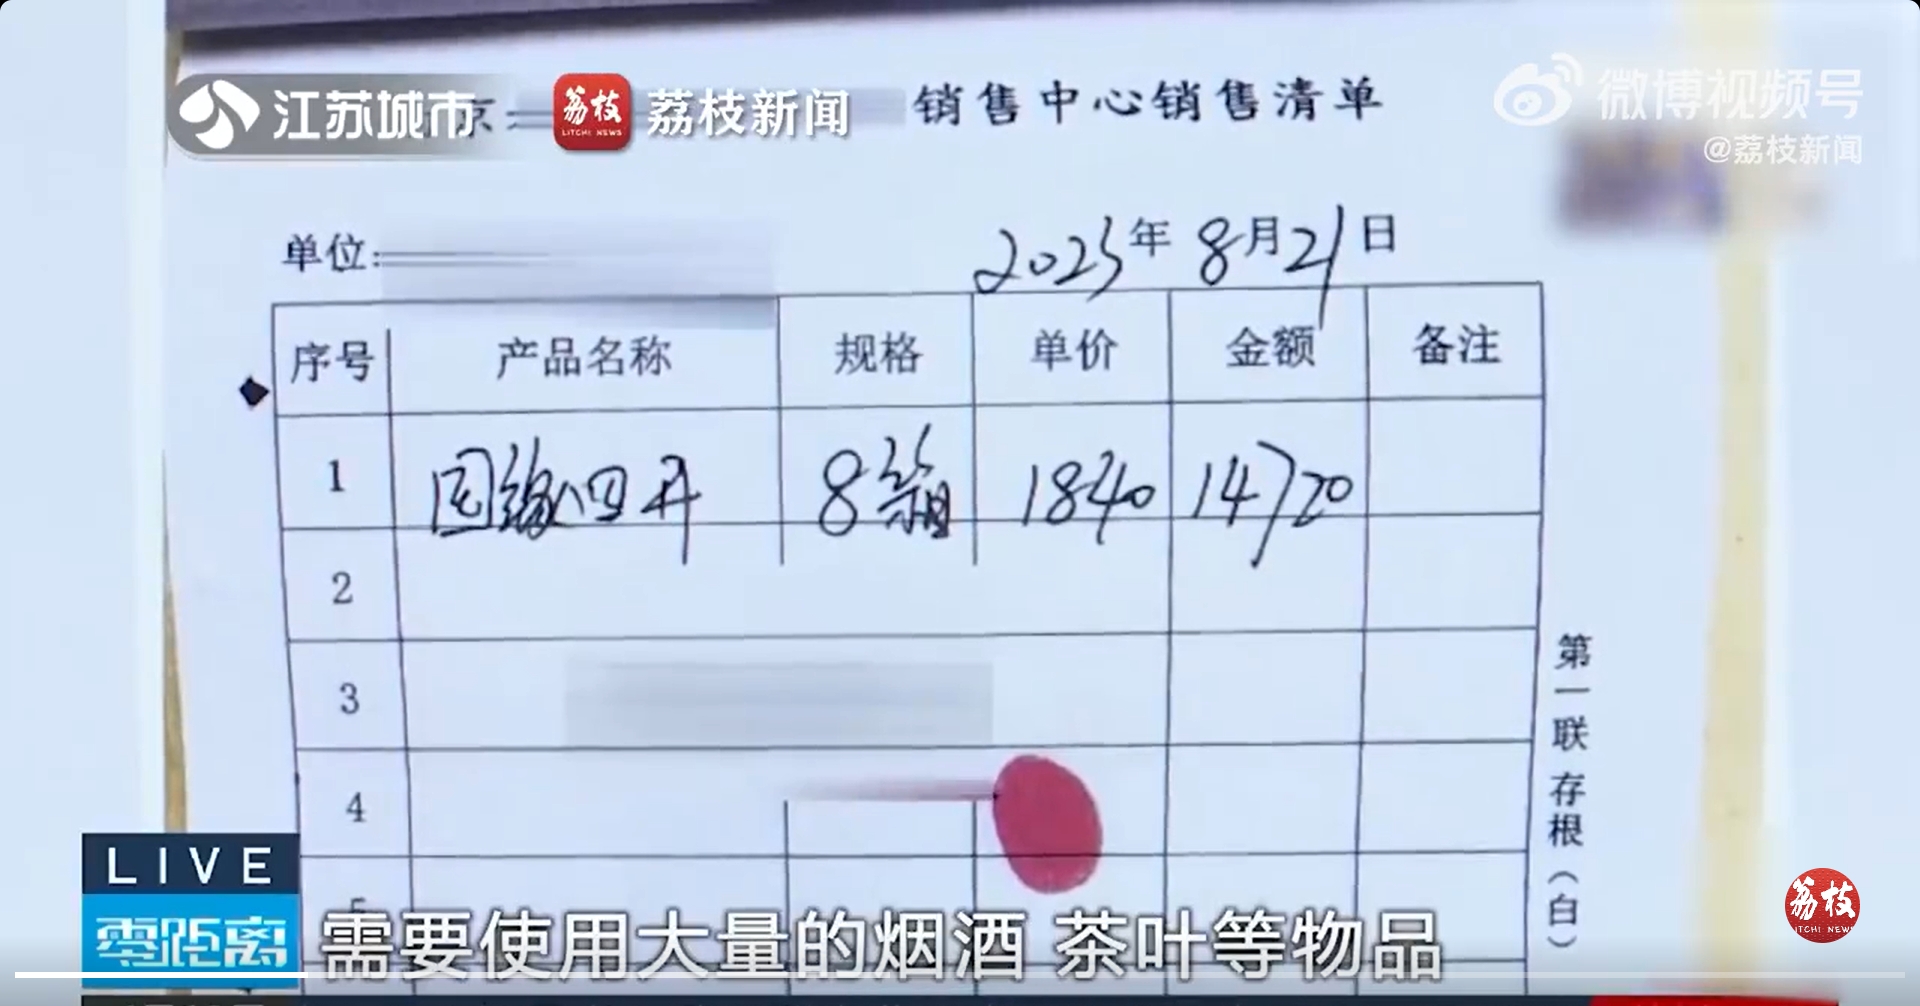 江苏城市
荔枝
LITCHI NEWS
荔枝新闻
京
销售中心销售清单
微博视频号
@荔枝新闻
单位:
2023年8月21日
序号 产品名称 规格 单价 金额 备注
1 国缘四开 8箱 1840 14720
2
3
4
5
第一联 存根（白）
LIVE
零距离
需要使用大量的烟酒 茶叶等物品
荔枝
ITCHI NEWS